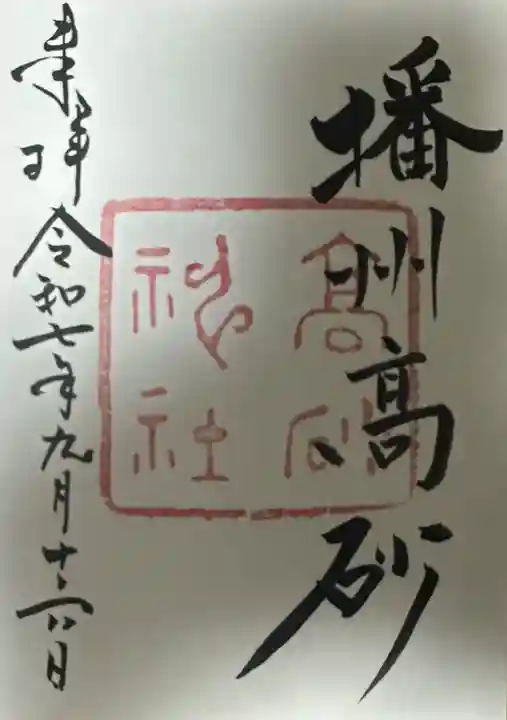 播州高砂
高砂
神社
奉拝 令和七年九月十六日